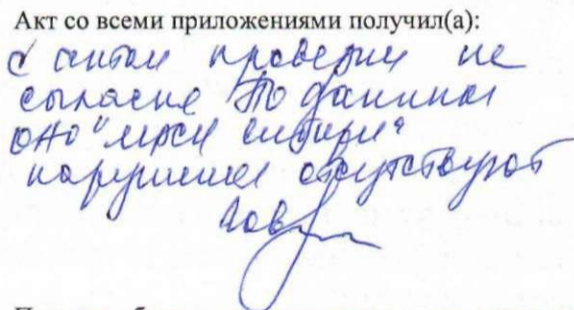 Акт со всеми приложениями получил(а):
с актом проверки не
согласна По данным
ОАО "МРСК Сибири"
нарушения отсутствуют